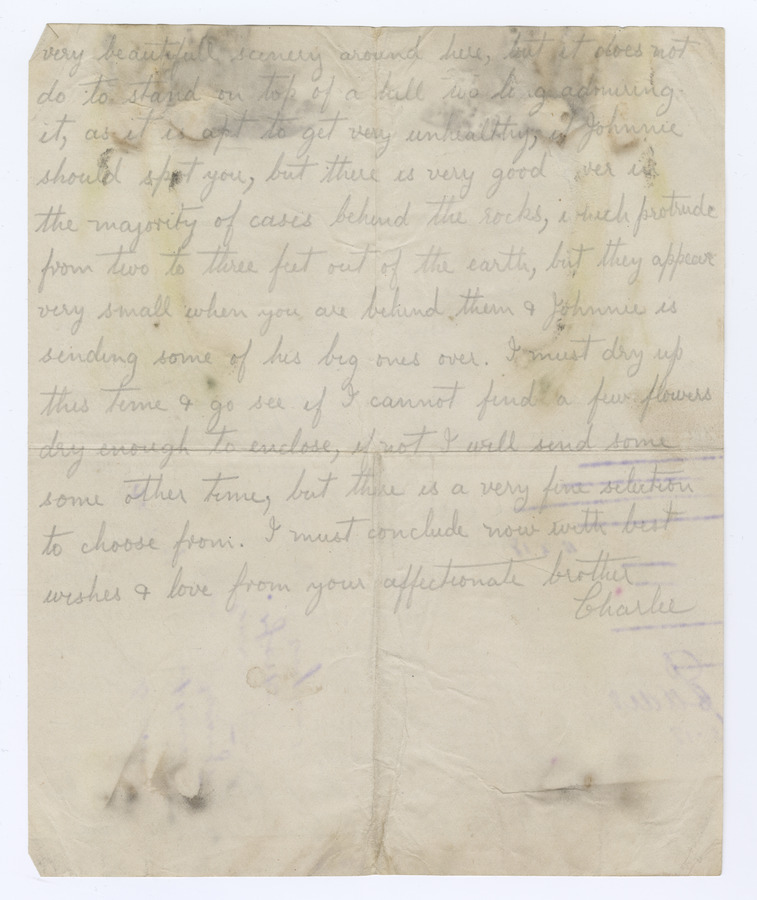 very beautifull scenery around here, but it does not
do to stand on top of a hill too long admiring
it, as it is apt to get very unhealthy, if Johnnie
should spot you, but there is very good over in
the majority of cases behind the rocks, which protrude
from two to three feet out of the earth, but they appear
very small when you are behind them & Johnnie is
sending some of his big ones over. I must dry up
this time & go see if I cannot find a few flowers
dry enough to enclose, if not I will send some
some other time, but there is a very fine selection
to choose from. I must conclude now with best
wishes & love from your affectionate brother
Charlie